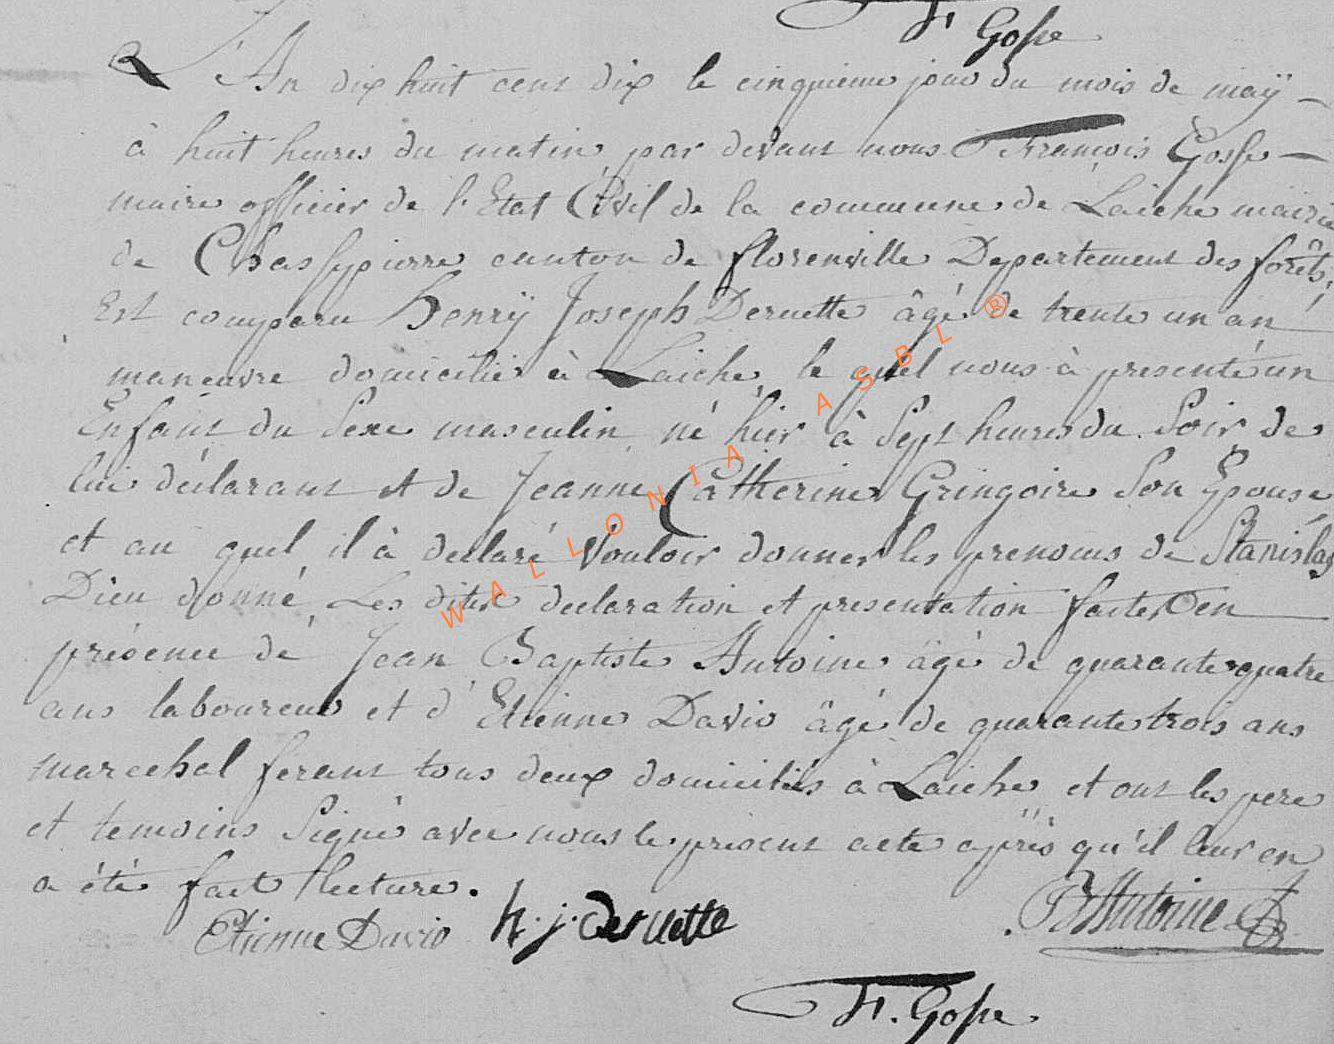 F. Gosse
L'An dix huit cent dix le cinquieme jour du mois de maÿ
à huit heures du matin par devant nous Francois Gosse
maire officier de l'Etat Civil de la commune de Laiche mairie
de Chassepierre canton de florenville Departement des forêts,
Est comparu Henrÿ Joseph Deruette âgé de trente un an
maneuvre domicilié à Laiche, le quel nous à presenté un
Enfant du Sexe masculin né hier à Sept heures du Soir de
lui déclarant et de Jeanne Catherine Gringoire Son Epouse
et au quel il à declaré Vouloir donner les prenoms de Stanislas
Dieu donné Les dites declaration et presentation faites en
présence dé Jean Baptiste Antoine âgé de quarante quatre
ans laboureur et d'Etienne David âgé de quarante trois ans
marechal ferant tous deux domiciliés à Laiche et ont les pere
et temoins Signé avec nous le present acte après qu'il leur en
a été fait lecture.
Etienne David h.j. deruette JB Antoine
F. Gosse
WALLONIA ASBL ®